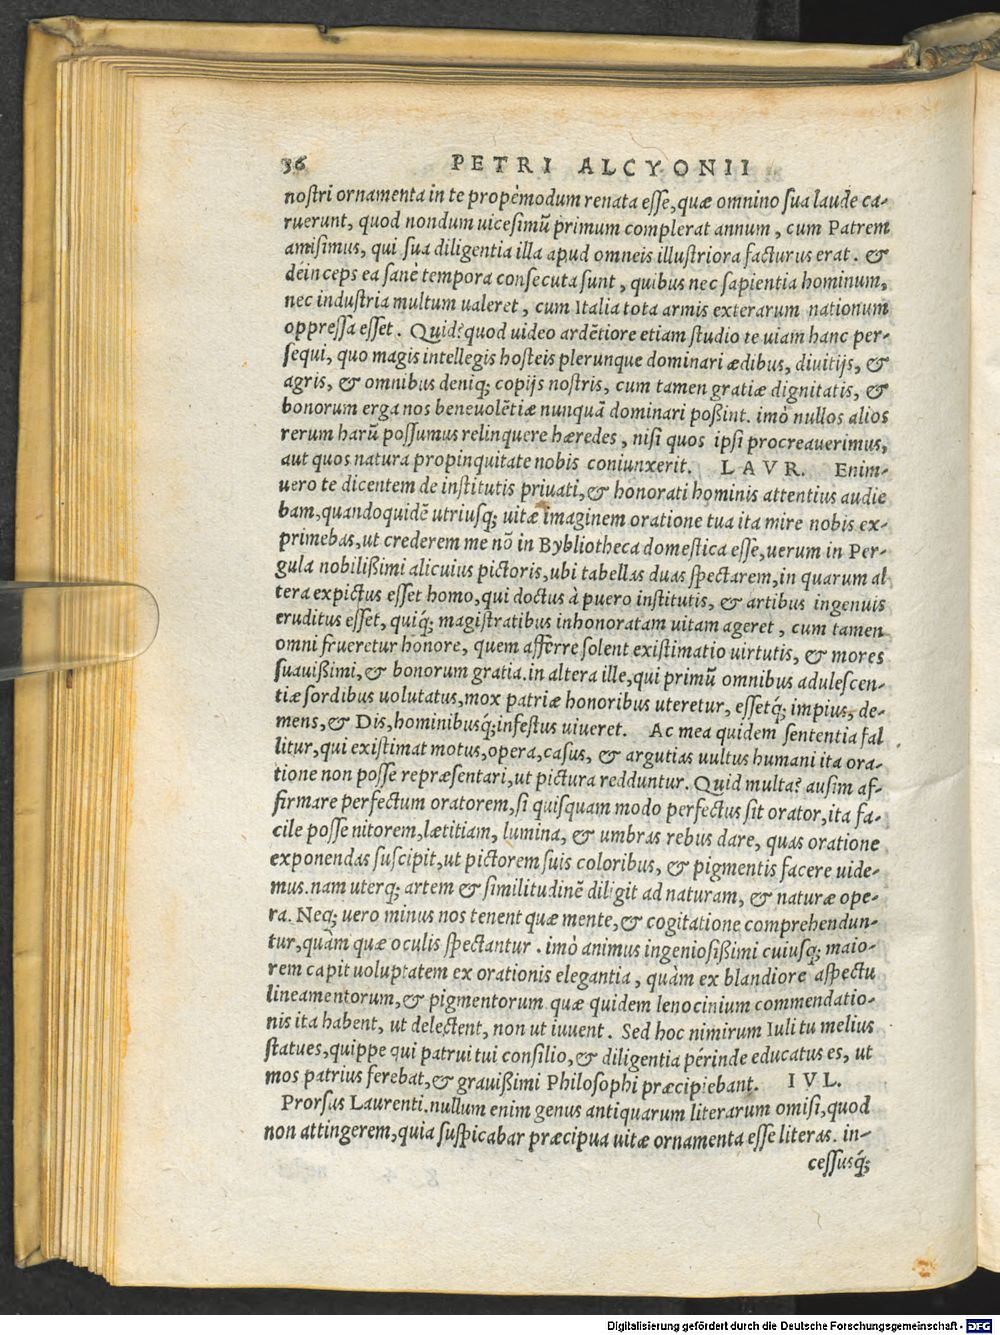 36 PETRI ALCYONII
nostri ornamenta in te propèmodum renata esse, quæ omnino sua laude ca-
ruerunt, quod nondum uicesimũ primum complerat annum, cum Patrem
amisimus, qui sua diligentia illa apud omneis illustriora facturus erat. &
déinceps ea sanè tempora consecuta sunt, quibus nec sapientia hominum,
nec industria multum ualeret, cum Italia tota armis exterarum nationum
oppressa esset. Quid? quod uideo ardẽtiore etiam studio te uiam hanc per-
sequi, quo magis intellegis hosteis plerunque dominari ædibus, diuitijs, &
agris, & omnibus deniq; copijs nostris, cum tamen gratiæ dignitatis, &
bonorum erga nos beneuolẽtiæ nunquã dominari poßint. imò nullos alios
rerum harũ possumus relinquere hæredes, nisi quos ipsi procreauerimus,
aut quos natura propinquitate nobis coniunxerit. LAVR. Enim-
uero te dicentem de institutis priuati, & honorati hominis attentius audie
bam, quandoquidẽ utriusq; uitæ imaginem oratione tua ita mire nobis ex-
primebas, ut crederem me nõ in Bybliotheca domestica esse, uerum in Per-
gula nobilißimi alicuius pictoris, ubi tabellas duas spectarem, in quarum al
tera expictus esset homo, qui doctus à puero institutis, & artibus ingenuis
eruditus esset, quiq́; magistratibus inhonoratam uitam ageret, cum tamen
omni frueretur honore, quem afferre solent existimatio uirtutis, & mores
suauißimi, & bonorum gratia. in altera ille, qui primũ omnibus adulescen-
tiæ sordibus uolutatus, mox patriæ honoribus uteretur, essetq́; impius, de-
mens, & Dis, hominibusq́; infestus uiueret. Ac mea quidem sententia fal
litur, qui existimat motus, opera, casus, & argutias uultus humani ita ora-
tione non posse repræsentari, ut pictura redduntur. Quid multa? ausim af-
firmare perfectum oratorem, si quisquam modo perfectus sit orator, ita fa-
cile posse nitorem, lætitiam, lumina, & umbras rebus dare, quas oratione
exponendas suscipit, ut pictorem suis coloribus, & pigmentis facere uide-
mus. nam uterq; artem & similitudinẽ diligit ad naturam, & naturæ ope-
ra. Neq; uero minus nos tenent quæ mente, & cogitatione comprehendun-
tur, quàm quæ oculis spectantur. imò animus ingeniosißimi cuiusq; maio-
rem capit uoluptatem ex orationis elegantia, quàm ex blandiore aspectu
lineamentorum, & pigmentorum. quæ quidem lenocinium commendatio-
nis ita habent, ut delectent, non ut iuuent. Sed hoc nimirum Iuli tu melius
statues, quippe qui patrui tui consilio, & diligentia périnde educatus es, ut
mos patrius ferebat, & grauißimi Philosophi præcipiebant. IVL.
Prorsus Laurenti. nullum enim genus antiquarum literarum omisi, quod
non attingerem, quia suspicabar præcipua uitæ ornamenta esse literas. in-
cessusq́;
Digitalisierung gefördert durch die Deutsche Forschungsgemeinschaft - DFG